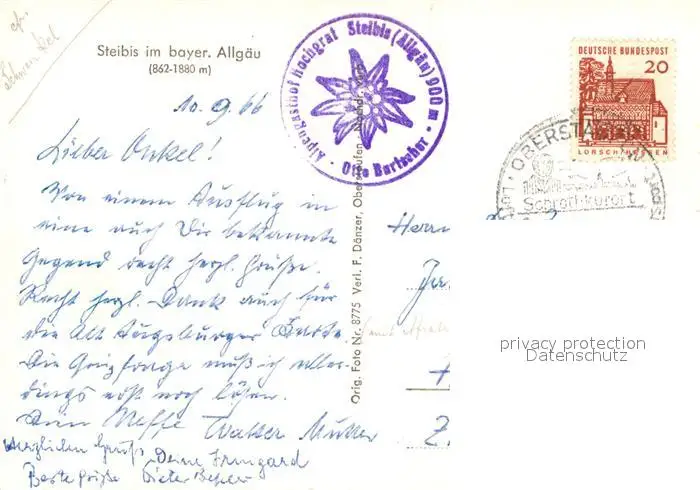 Steibis im bayer. Allgäu
(862-1880 m)
Alpengasthof Hochgrat Steibis (Allgäu) 900 m
Otto Bartscher
DEUTSCHE BUNDESPOST
20
LORSCH/HESSEN
OBERSTAUFEN
Schroth-kurort
10. 9. 66
Lieber Onkel!
Von einem Ausflug in
eine auch Dir bekannte
Gegend recht herzl. Grüße.
Recht herzl. Dank auch für
die Alt Augsburger Karte.
Die Preisfrage muß ich aller-
dings erst noch lösen.
Dein Neffe Walter Müller
Herzlichen Gruß Deine Irmgard
Beste Grüße Dieter
Orig. Foto Nr. 8775 Verl. F. Dänzer, Oberstaufen Nachdr. verb.
Herrn
privacy protection
Datenschutz